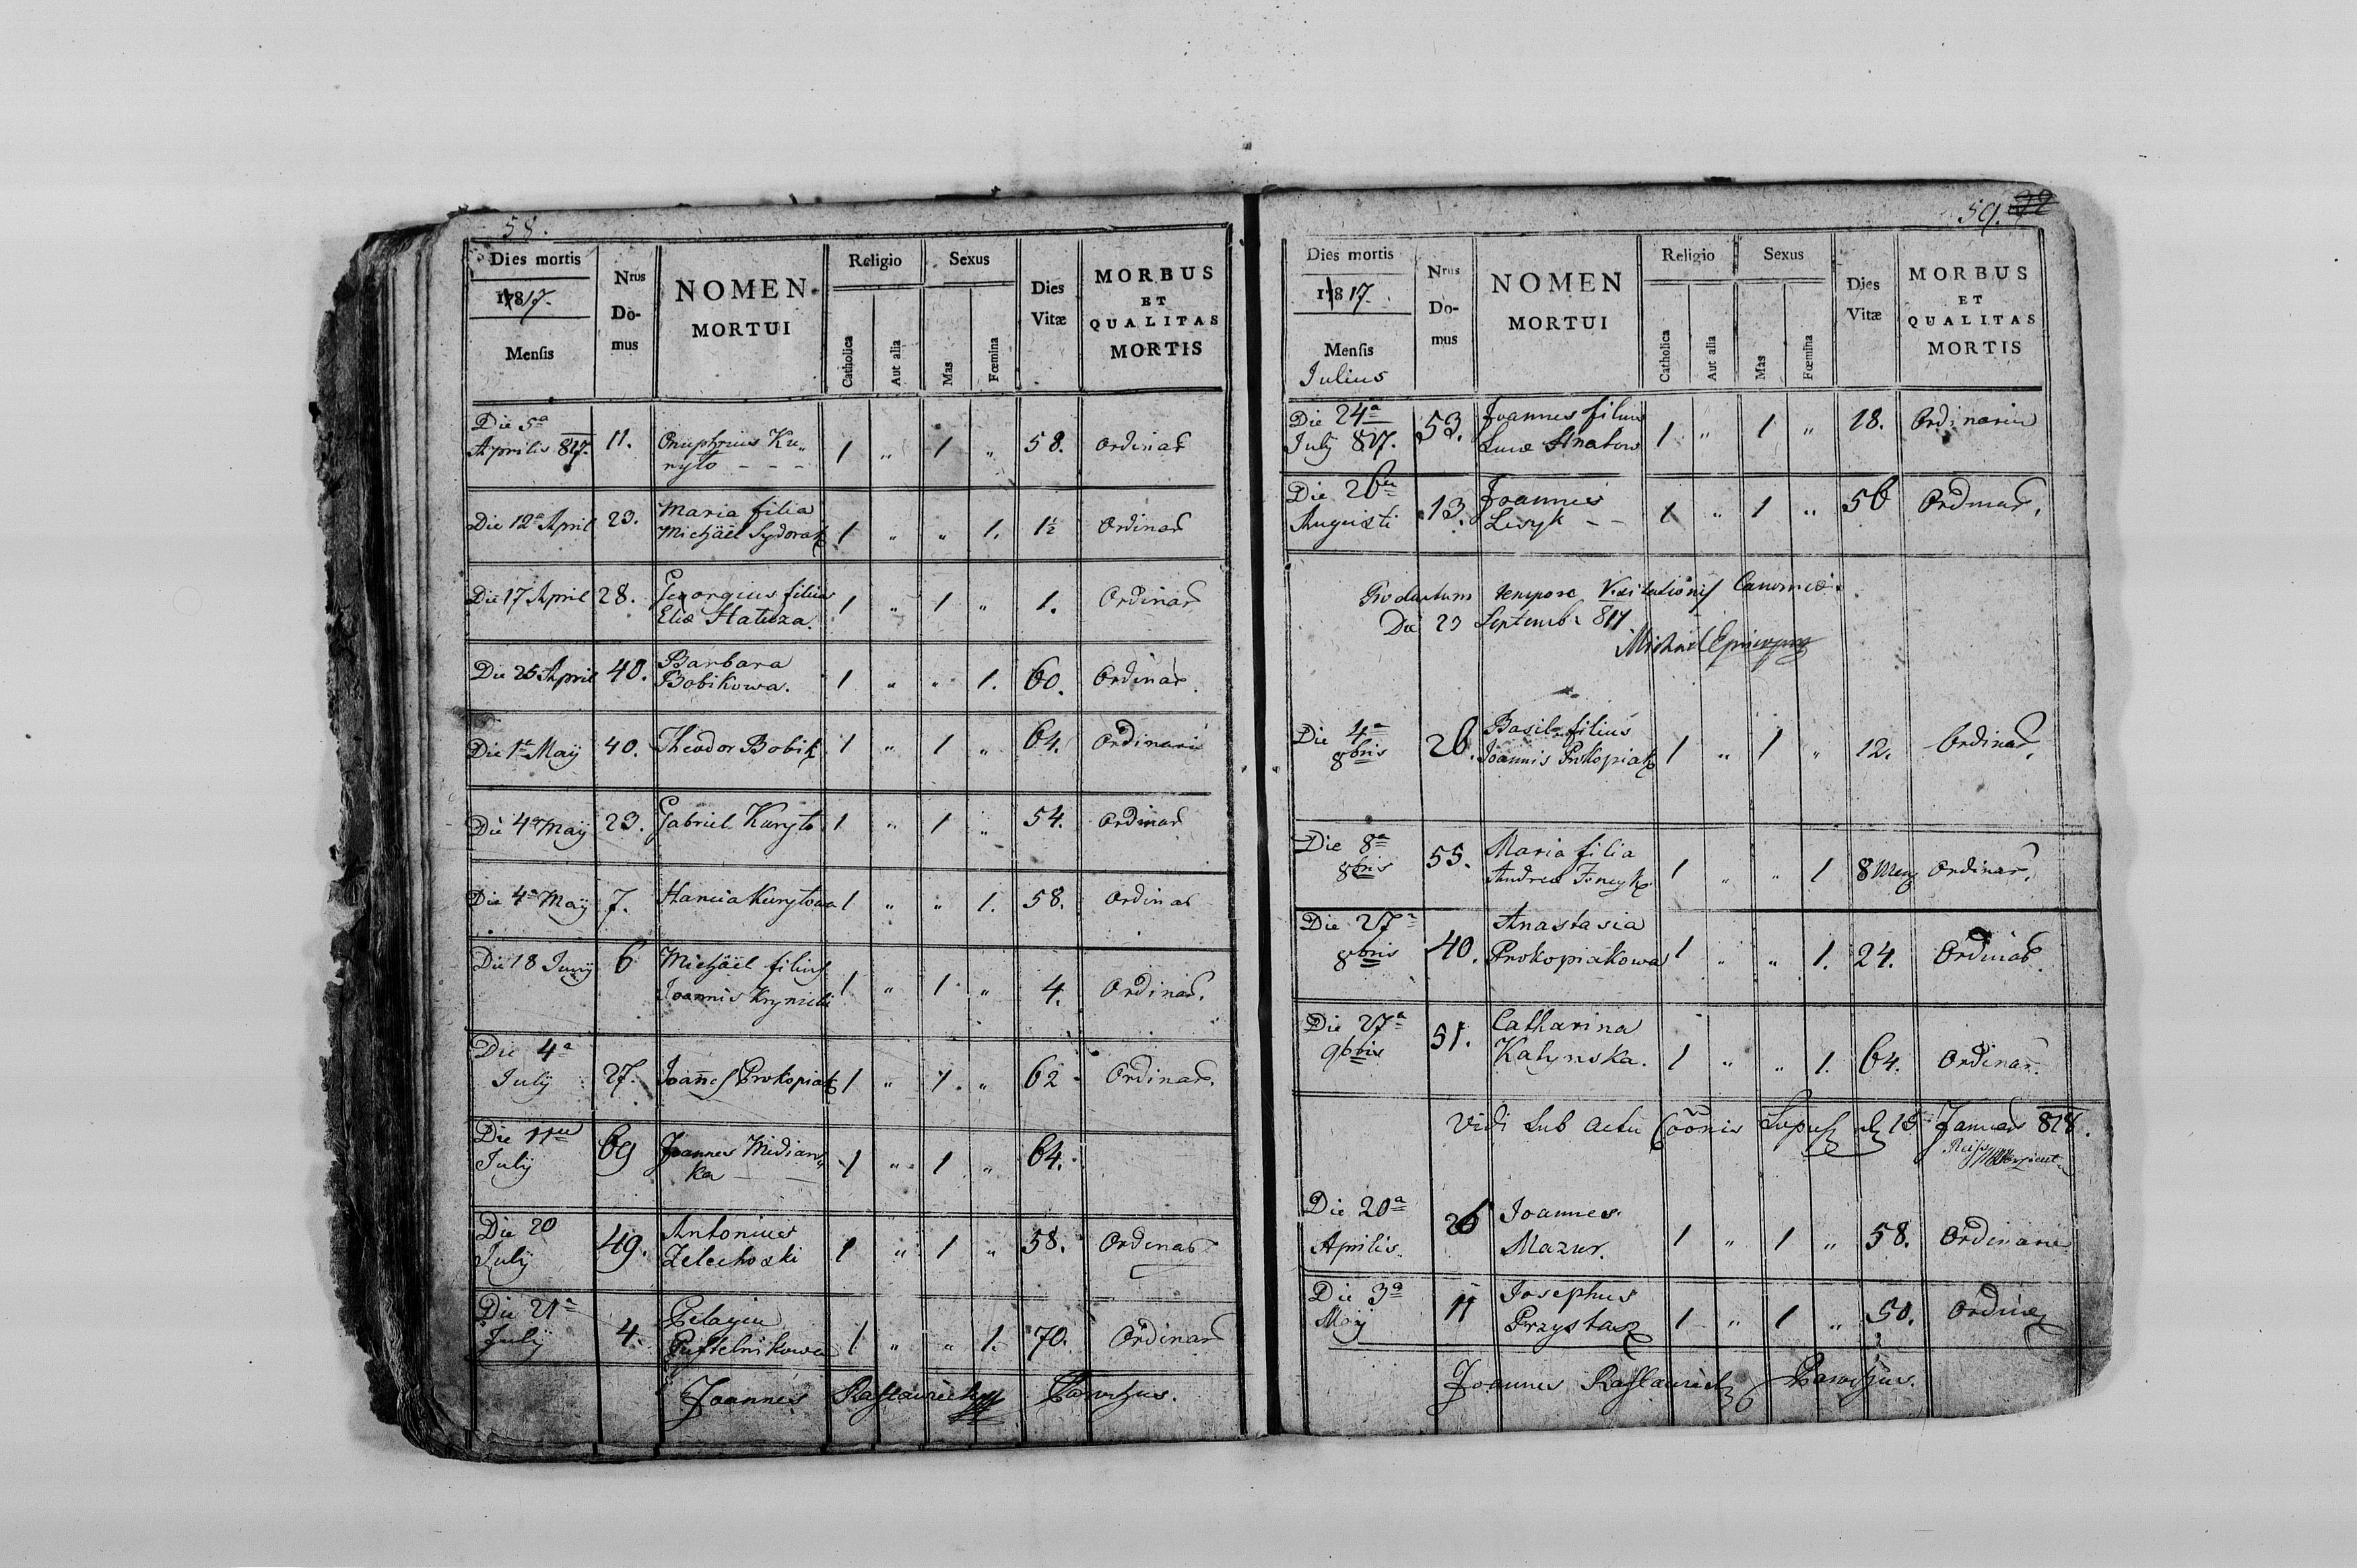 58.
Dies mortis
1817.
Mensis
Nrus
Do-
mus
NOMEN
MORTUI
Religio
Catholica
Aut alia
Sexus
Mas
Fœmina
Dies
Vitæ
MORBUS
ET
QUALITAS
MORTIS
Die 5a
Aprilis 817. 11. Onuphrius Ku„
ryło - - - 1 „ 1 „ 58. Ordinar
Die 12a April 23. Maria filia
Michäel Sydorak 1 „ „ 1. 1½ Ordinar
Die 17 April 28. Georgius filius
Eliæ 1 „ 1 „ 1. Ordinar
Die 25 April 40. Barbara
Bobikowa. 1 „ „ 1. 60. Ordinar.
Die 1a Maÿ 40. Theodor Bobik 1 „ 1 „ 64. Ordinaria
Die 4a Maÿ 23. Gabriel Kuryło 1 „ 1 „ 54. Ordinar
Die 4a Maÿ 7. Hancia Kuryłowa 1 „ „ 1. 58. Ordinar
Die 18 Junÿ 6 Michäel filius
Joannis 1 „ 1 „ 4. Ordinar.
Die 4a
Julÿ 27. Joannes Prokopiak 1 „ 1. „ 62 Ordinar.
Die 11
Julÿ 69 Joannes Midians„
ka 1 „ 1 „ 64.
Die 20
Julÿ 49. Antonius
Zelechoski 1 „ 1 „ 58. Ordinar
Die 21a
Julÿ 4. Pelagia
Pustelnikowa 1 „ „ 1. 70. Ordinar
Joannes Parochus.
59. 22
Dies mortis
1817.
Mensis
Julius
Nrus
Do-
mus
NOMEN
MORTUI
Religio
Catholica
Aut alia
Sexus
Mas
Fœmina
Dies
Vitæ
MORBUS
ET
QUALITAS
MORTIS
Die 24a
July 817. 53. Joannes filius
Lucæ Hnatow 1 „ 1 „ 18. Ordinaria
Die 26
Augusti 13. Joannes
Lesyk - - 1 „ 1 „ 56 Ordinar.
Productum tempore Visitationis Canonicæ
Die 23 Septemb 817
Michael Episcopus
Die 4a
8bris 26. Basil filius
Joannis Prokopiak 1 „ 1 „ 12. Ordinar.
Die 8a
8bris 55. Maria filia
Andreæ 1 „ „ 1 8 Ordinar.
Die 27a
8bris 40. Anastasia
Prokopiakowa 1 „ „ 1. 24. Ordinar.
Die 27a
9bris 51. Catharina
Kalynska. 1 „ „ 1. 64. Ordinar.
Vidi sub actu 15 Januar 818.
Die 20a
Aprilis 26 Joannes
Mazur. 1 „ 1 „ 58. Ordinaria
Die 3a
Maÿ 11 Josephus
Przystasz 1 „ 1 „ 50. Ordinar
Joannes Parochus.